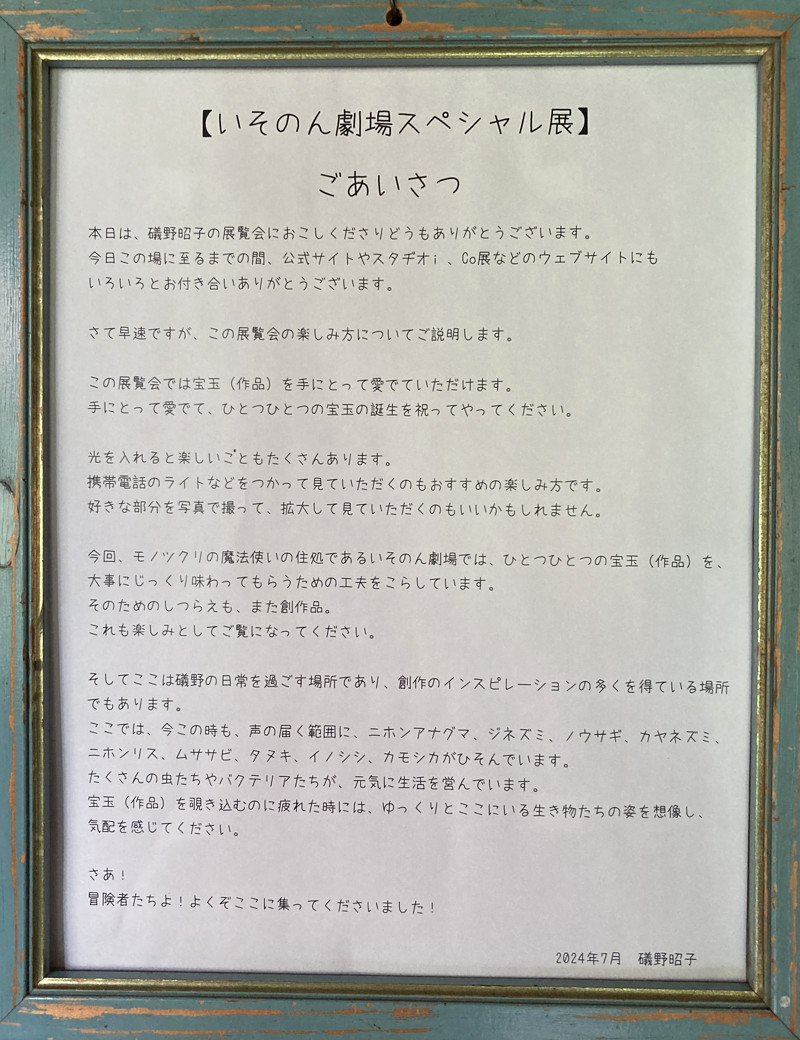 【いそのん劇場スペシャル展】
ごあいさつ
本日は、礒野昭子の展覧会におこしくださりどうもありがとうございます。
今日この場に至るまでの間、公式サイトやスタヂオi 、Co展などのウェブサイトにも
いろいろとお付き合いありがとうございます。
さて早速ですが、この展覧会の楽しみ方についてご説明します。
この展覧会では宝玉（作品）を手にとって愛でていただけます。
手にとって愛でて、ひとつひとつの宝玉の誕生を祝ってやってください。
光を入れると楽しいごともたくさんあります。
携帯電話のライトなどをつかって見ていただくのもおすすめの楽しみ方です。
好きな部分を写真で撮って、拡大して見ていただくのもいいかもしれません。
今回、モノツクリの魔法使いの住処であるいそのん劇場では、ひとつひとつの宝玉（作品）を、
大事にじっくり味わってもらうための工夫をこらしています。
そのためのしつらえも、また創作品。
これも楽しみとしてご覧になってください。
そしてここは礒野の日常を過ごす場所であり、創作のインスピレーションの多くを得ている場所
でもあります。
ここでは、今この時も、声の届く範囲に、ニホンアナグマ、ジネズミ、ノウサギ、カヤネズミ、
ニホンリス、ムササビ、タヌキ、イノシシ、カモシカがひそんでいます。
たくさんの虫たちやバクテリアたちが、元気に生活を営んでいます。
宝玉（作品）を覗き込むのに疲れた時には、ゆっくりとここにいる生き物たちの姿を想像し、
気配を感じてください。
さあ！
冒険者たちよ！よくぞここに集ってくださいました！
2024年7月　礒野昭子